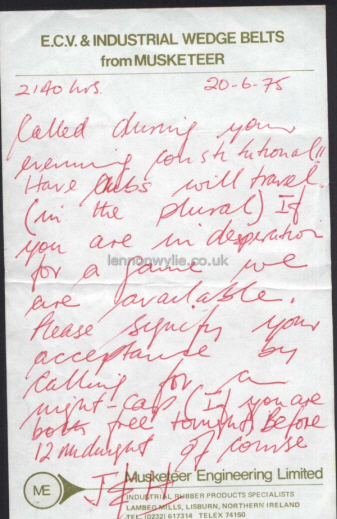 E.C.V. & INDUSTRIAL WEDGE BELTS
from MUSKETEER
2140 hrs. 20-6-75
Called during your
evening constitutional!!
Have clubs will travel.
(in the plural) If
you are in desperation
for a game we
lennonwylie.co.uk
are available.
Please signify your
acceptance by
calling for a
night-cap (If you are
both free tonight) Before
12 midnight of course
ME
Musketeer Engineering Limited
INDUSTRIAL RUBBER PRODUCTS SPECIALISTS
LAMBEG MILLS, LISBURN, NORTHERN IRELAND
TEL (0232) 617314 TELEX 74150